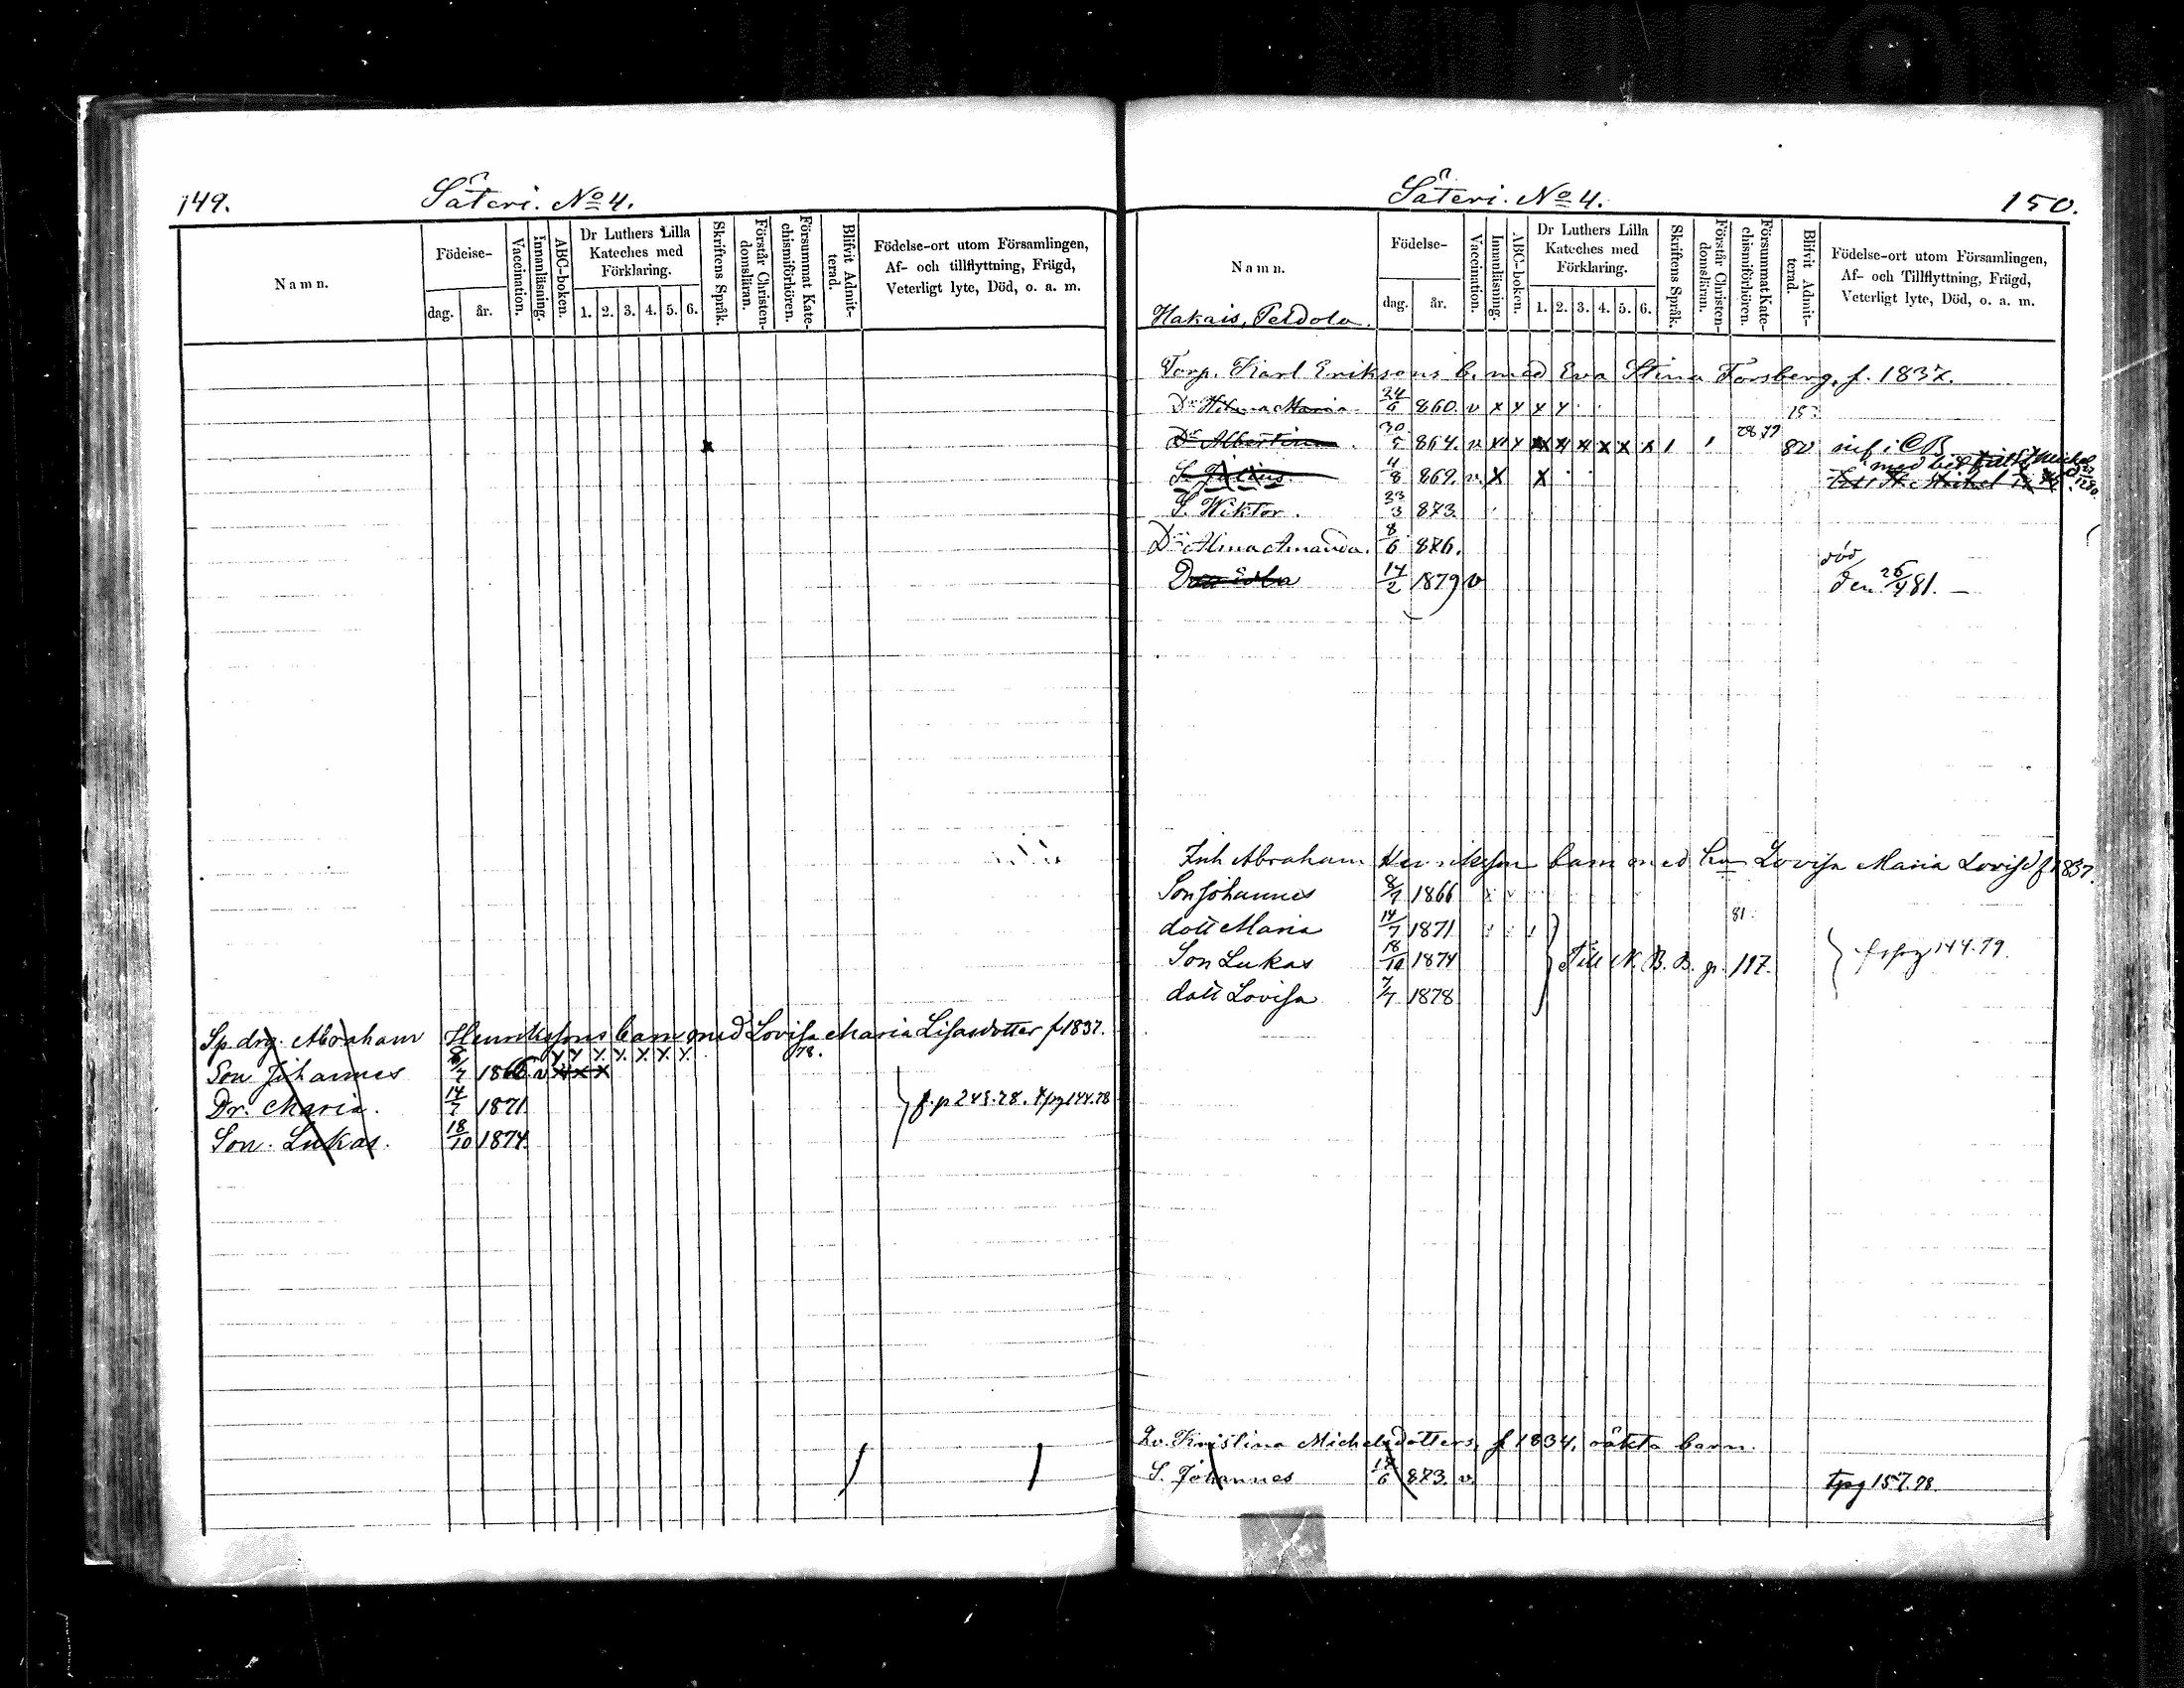 149.
Säteri. No 4.
Namn.
Födelse-
dag.
år.
Vaccination.
Innanläsning.
ABC-boken.
Dr Luthers Lilla
Kateches med
Förklaring.
1. 2. 3. 4. 5. 6.
Skriftens Språk.
Förstår Christen-
domsläran.
Försummat Kate-
chismiförhören.
Blifvit Admit-
terad.
Födelse-ort utom Församlingen,
Af- och tillflyttning, Frägd,
Veterligt lyte, Död, o. a. m.
x
Sp. drg. Abraham Henrikssons barn med Lovisa Maria Lisasdotter f. 1837.
Son Johannes 8/7 1866 v x x x 78.
Dr. Maria. 14/7 1871 f. p 243.78. tpg 144.78
Son. Lukas. 18/10 1874.
Säteri. No 4.
150.
Namn.
Födelse-
dag.
år.
Vaccination.
Innanläsning.
ABC-boken.
Dr Luthers Lilla
Kateches med
Förklaring.
1. 2. 3. 4. 5. 6.
Skriftens Språk.
Förstår Christen-
domsläran.
Försummat Kate-
chismiförhören.
Blifvit Admit-
terad.
Födelse-ort utom Församlingen,
Af- och Tillflyttning, Frägd,
Veterligt lyte, Död, o. a. m.
Hakais, Peldola.
Torp. Karl Eriksons b. med Eva Stina Forsberg, f. 1837.
Dr Hilma Maria 24/6 860. v x x x x
Dr Albertina. 30/5 864. v x x x x x x x x 80
S. Julius. 4/8 869. v. x x
S. Wiktor. 23/3 873
Dr Alma Amanda. 8/6 876.
14/2 1879 v död den 26/4 81.
Inh Abraham Henriksson barn med hu Lovisa Maria f 1837.
Son Johannes 8/7 1866
dott Maria 14/7 1871 81.
Son Lukas 18/10 1874 Till N. B. B. p. 117. 144.79
dott Lovisa 7/7 1878
Kristina Michelsdotters, f 1834, oäkta barn.
S. Johannes 6 873. v. tpg 157.78.